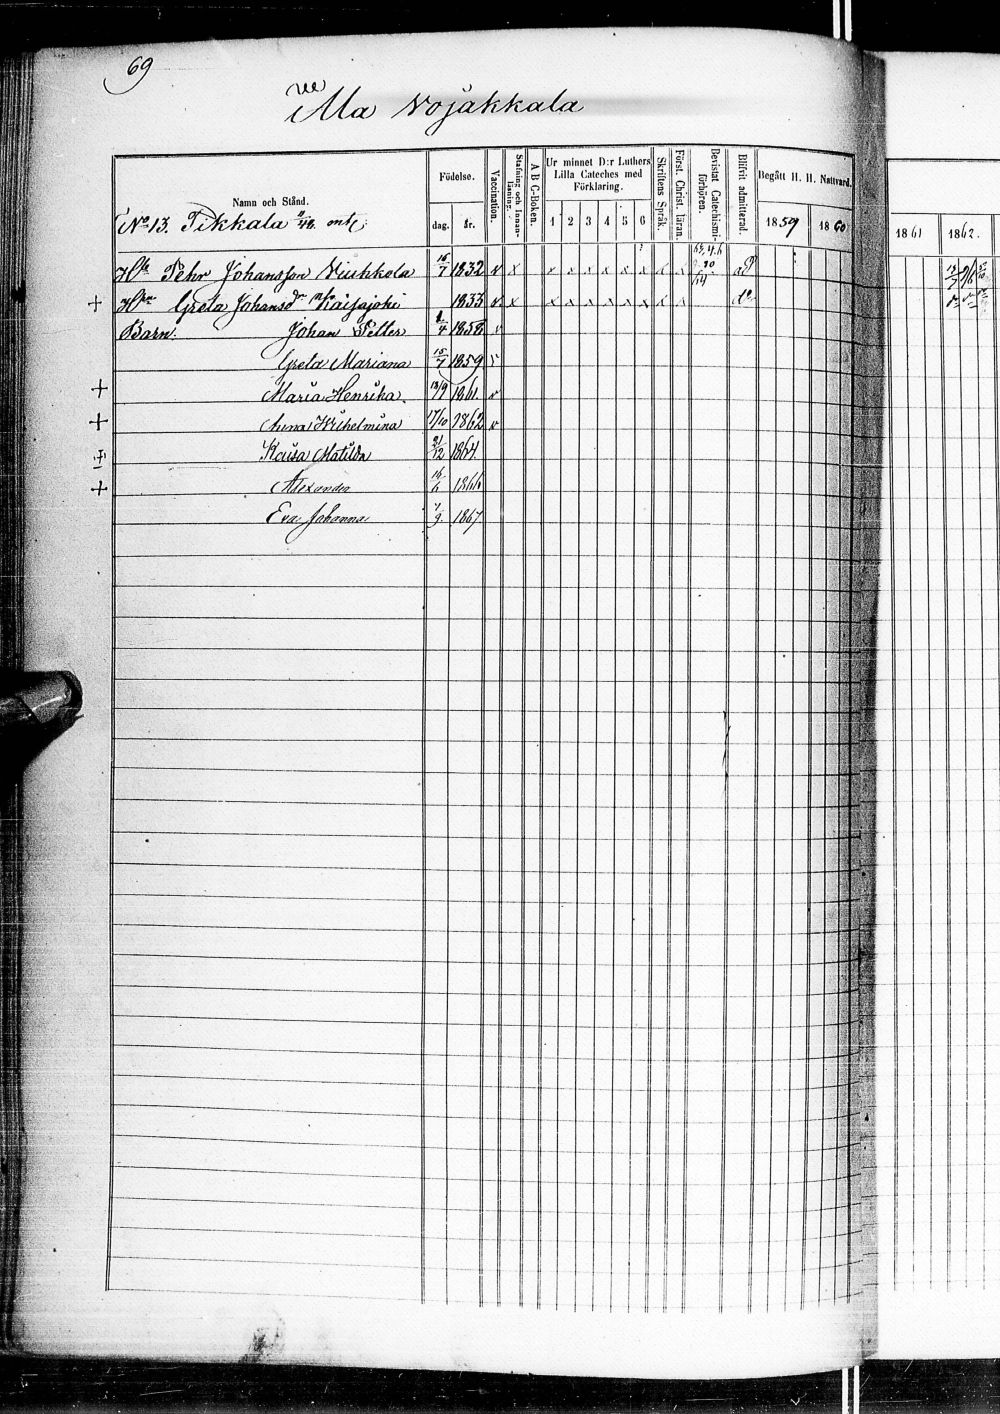 69
Alla Vojakkala
Namn och Stånd.
Födelse.
dag.
år.
Vaccination.
Stafning och Innanläsning.
A B C-Boken.
Ur minnet D:r Luthers Lilla Cateches med Förklaring.
1 2 3 4 5 6
Skriftens Språk.
Först. Christ. läran.
Bevistat Catechismiförhören.
Blifvit admitterad.
Begått H. H. Nattvard.
1859 1860
1861 1862.
No 13. Tikkala
Pehr Johansson Viuhkola 16/7 1832 v x x x x x x x x x ad
+ Greta Johansdr Kaisajoki 1833 v x x x x x x x x x do
Barn: Johan Petter 1858 v
Greta Mariana 15/7 1859
+ Maria Henrika. 18/9 1861. v
+ Anna Wilhelmina 17/10 1862 v
Kaisa Matilda 21/12 1864.
+ Alexander 16/6 1866
Eva Johanna 1867.